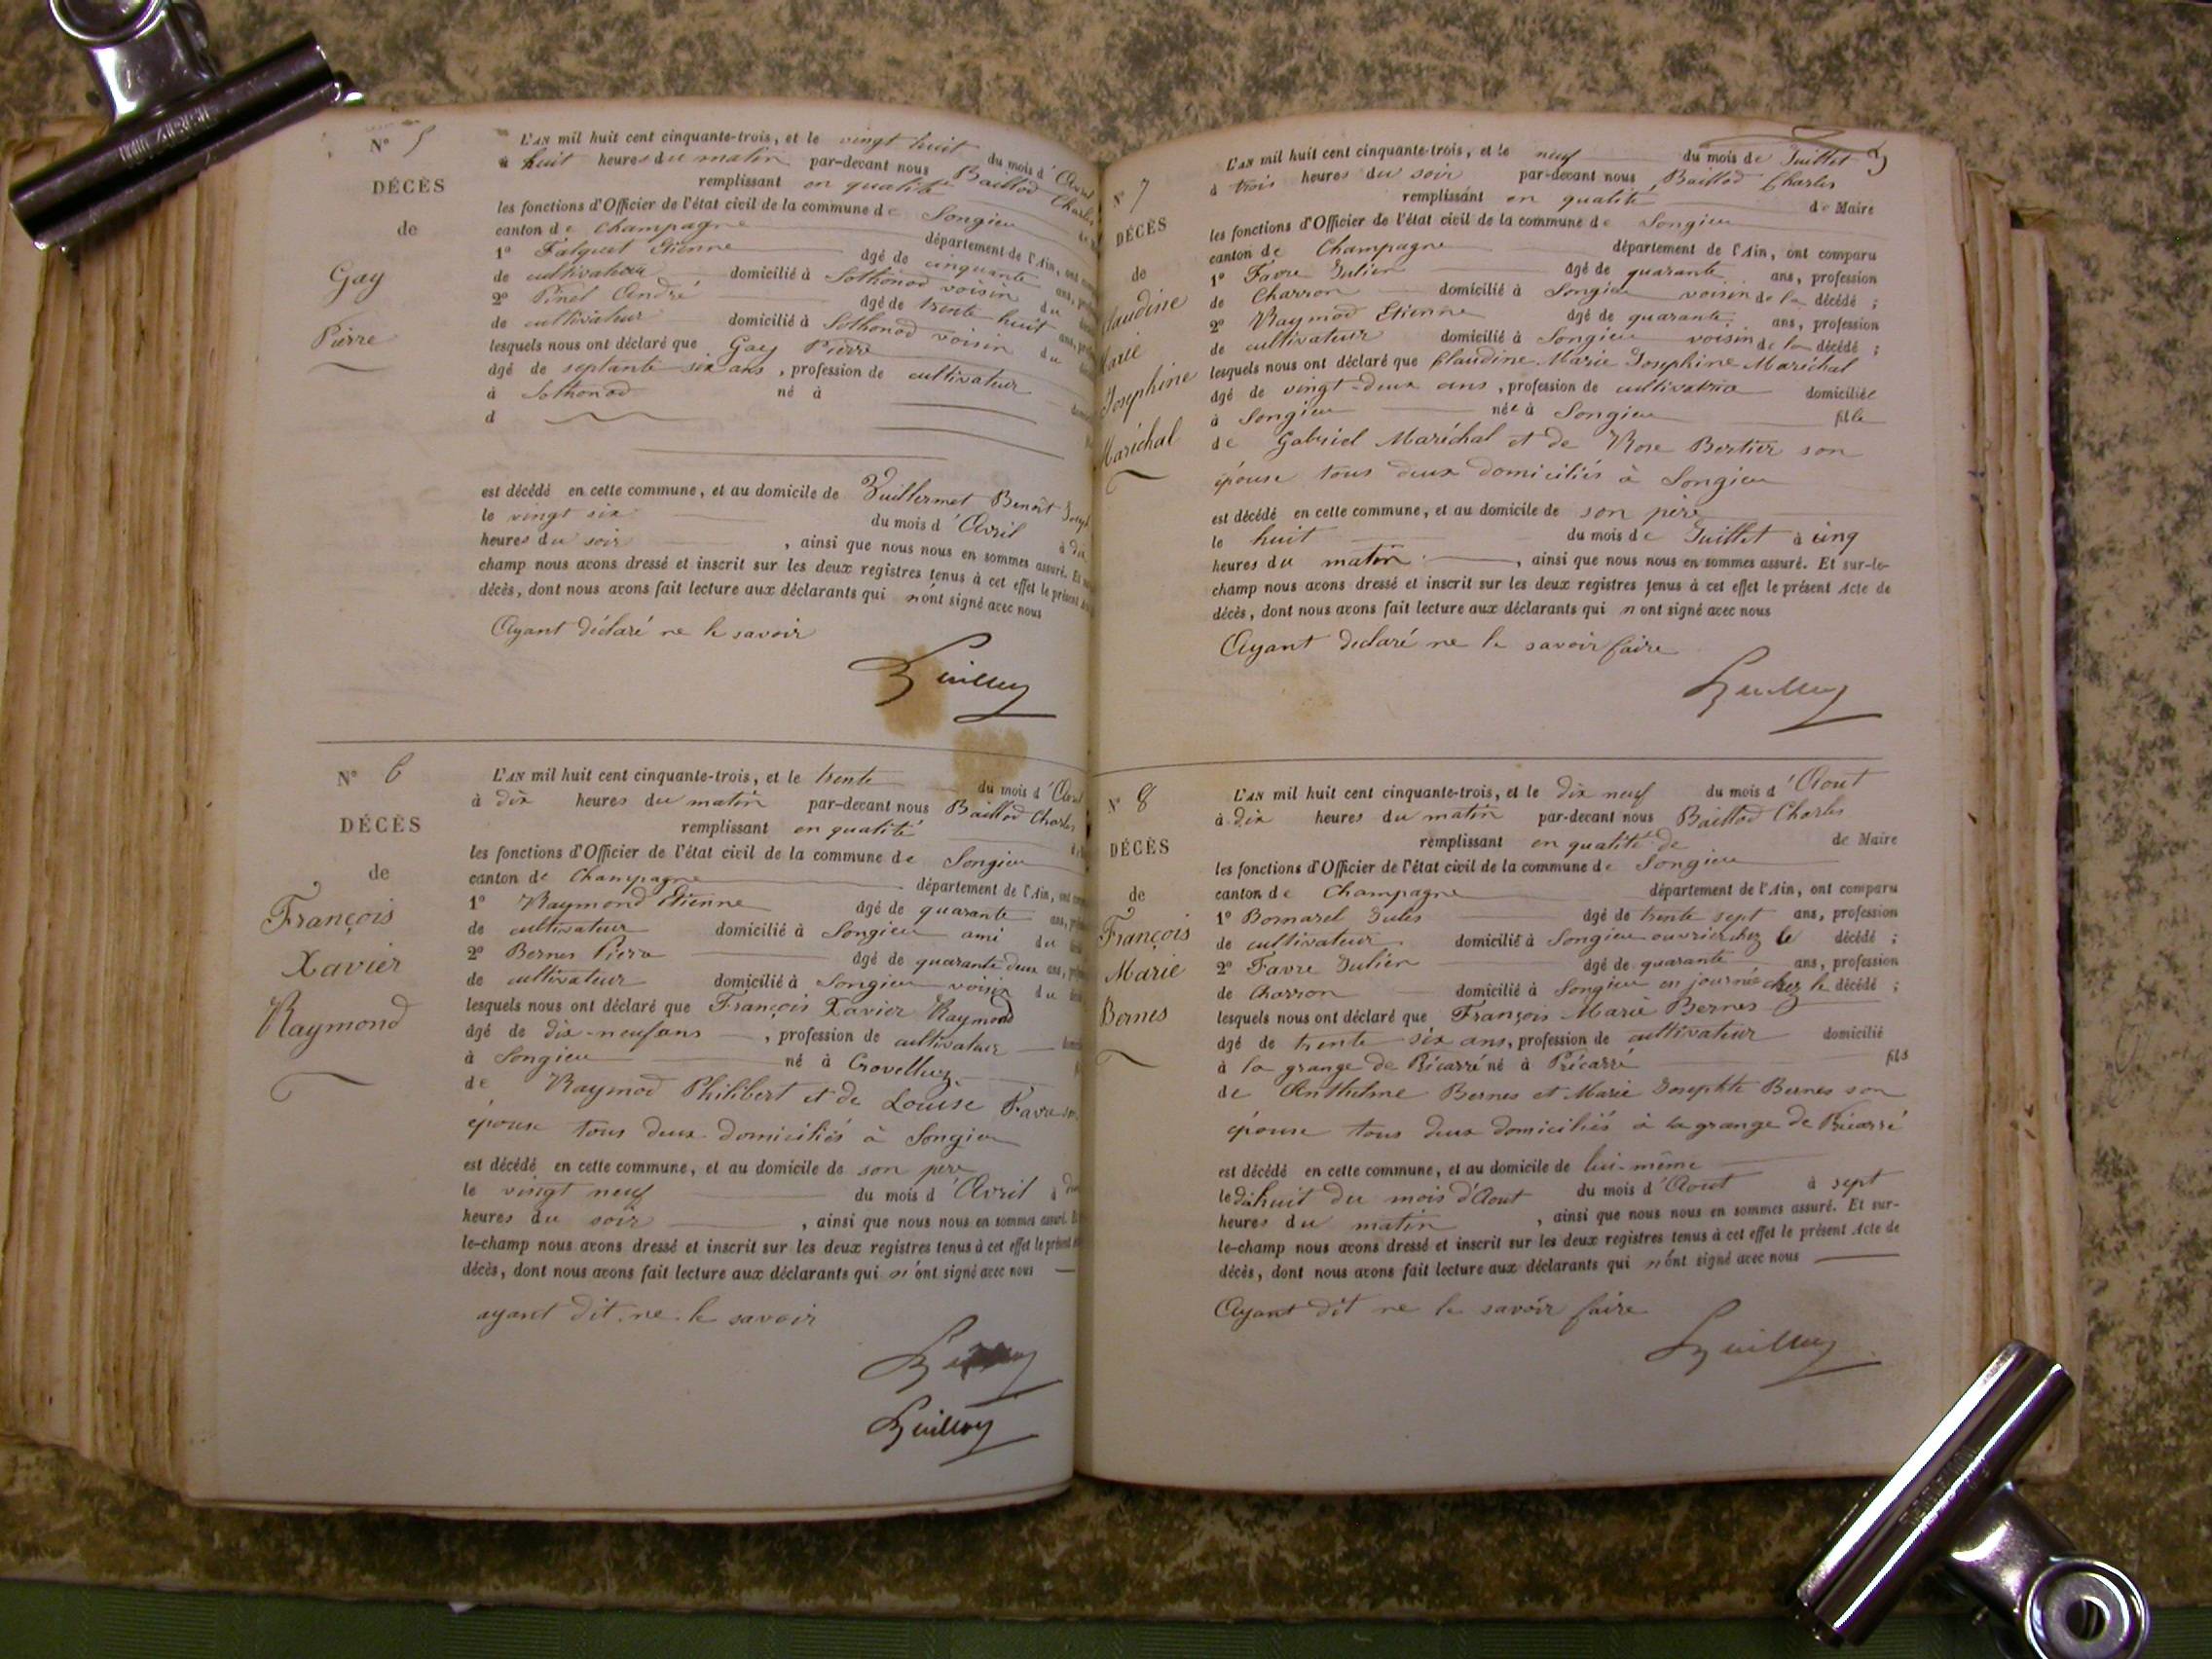 N° 5
DÉCÈS
de
Gay
Pierre
L'AN mil huit cent cinquante-trois, et le vingt huit du mois d'Avril
à huit heures du matin par-devant nous Baillod Charles
remplissant en qualité
les fonctions d'Officier de l'état civil de la commune de Songieu
canton de Champagne département de l'Ain, ont
1° Falquet Etienne âgé de cinquante ans,
de cultivateur domicilié à Sothonod voisin du
2° Pinel André âgé de trente huit ans,
de cultivateur domicilié à Sothonod voisin du
lesquels nous ont déclaré que Gay Pierre
âgé de septante six ans, profession de cultivateur
à Sothonod né à
d
est décédé en cette commune, et au domicile de Vuillermet Benoît Joseph
le vingt six du mois d'Avril à dix
heures du soir, ainsi que nous nous en sommes assuré. Et
champ nous avons dressé et inscrit sur les deux registres tenus à cet effet le présent
décès, dont nous avons fait lecture aux déclarants qui n'ont signé avec nous
Ayant déclaré ne le savoir
N° 6
DÉCÈS
de
François
Xavier
Raymond
L'AN mil huit cent cinquante-trois, et le trente du mois d'Avril
à dix heures du matin par-devant nous Baillod Charles
remplissant en qualité
les fonctions d'Officier de l'état civil de la commune de Songieu
canton de Champagne département de l'Ain, ont
1° Raymond Etienne âgé de quarante ans,
de cultivateur domicilié à Songieu ami du
2° Bernes Pierre âgé de quarante deux ans,
de cultivateur domicilié à Songieu voisin du
lesquels nous ont déclaré que François Xavier Raymond
âgé de dix-neuf ans, profession de cultivateur
à Songieu né à
de Raymod Philibert et de Louise Favre son
épouse tous deux domiciliés à Songieu
est décédé en cette commune, et au domicile de son père
le vingt neuf du mois d'Avril à
heures du soir, ainsi que nous nous en sommes assuré. Et
le-champ nous avons dressé et inscrit sur les deux registres tenus à cet effet le présent
décès, dont nous avons fait lecture aux déclarants qui n'ont signé avec nous
ayant dit ne le savoir
N° 7
DÉCÈS
de
Claudine
Marie
Josephine
Maréchal
L'AN mil huit cent cinquante-trois, et le neuf du mois de Juillet
à trois heures du soir par-devant nous Baillod Charles
remplissant en qualité de Maire
les fonctions d'Officier de l'état civil de la commune de Songieu
canton de Champagne département de l'Ain, ont comparu
1° Favre Julien âgé de quarante ans, profession
de Charron domicilié à Songieu voisin de la décédé ;
2° Raymod Etienne âgé de quarante ans, profession
de cultivateur domicilié à Songieu voisin de la décédé ;
lesquels nous ont déclaré que Claudine Marie Josephine Maréchal
âgé de vingt-deux ans, profession de cultivatrice domiciliée
à Songieu née à Songieu fille
de Gabriel Maréchal et de Rose Bertier son
épouse tous deux domiciliés à Songieu
est décédé en cette commune, et au domicile de son père
le huit du mois de Juillet à cinq
heures du matin, ainsi que nous nous en sommes assuré. Et sur-le-
champ nous avons dressé et inscrit sur les deux registres tenus à cet effet le présent Acte de
décès, dont nous avons fait lecture aux déclarants qui n ont signé avec nous
Ayant declaré ne le savoir faire
N° 8
DÉCÈS
de
François
Marie
Bernes
L'AN mil huit cent cinquante-trois, et le dix neuf du mois d'Aout
à dix heures du matin par-devant nous Baillod Charles
remplissant en qualité de de Maire
les fonctions d'Officier de l'état civil de la commune de Songieu
canton de Champagne département de l'Ain, ont comparu
1° Bornarel Jules âgé de trente sept ans, profession
de cultivateur domicilié à Songieu ouvrier chez le décédé ;
2° Favre Julien âgé de quarante ans, profession
de Charron domicilié à Songieu en journée chez le décédé ;
lesquels nous ont déclaré que François Marie Bernes
âgé de trente six ans, profession de cultivateur domicilié
à la grange de Précarré né à Précarré fils
de Anthelme Bernes et Marie Josephte Bernes son
épouse tous deux domiciliés à la grange de Précarré
est décédé en cette commune, et au domicile de lui-même
le dixhuit du mois d'Aout du mois d'Aout à sept
heures du matin, ainsi que nous nous en sommes assuré. Et sur-
le-champ nous avons dressé et inscrit sur les deux registres tenus à cet effet le présent Acte de
décès, dont nous avons fait lecture aux déclarants qui n'ont signé avec nous
Ayant dit ne le savoir faire